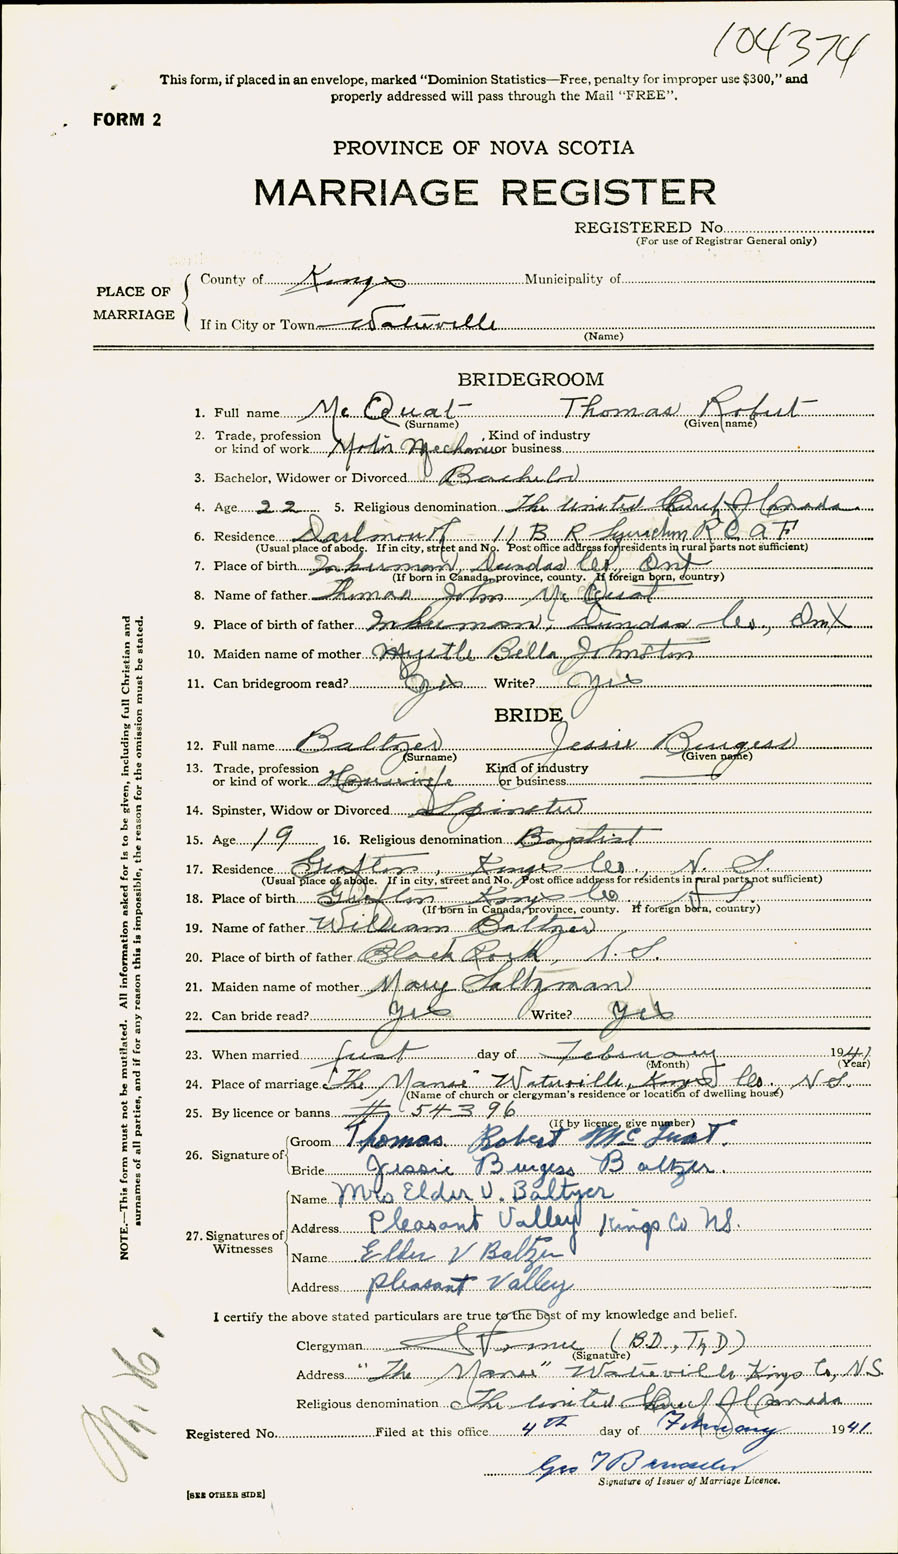 104374
This form, if placed in an envelope, marked "Dominion Statistics—Free, penalty for improper use $300," and
properly addressed will pass through the Mail "FREE".
FORM 2
PROVINCE OF NOVA SCOTIA
MARRIAGE REGISTER
REGISTERED No.
(For use of Registrar General only)
PLACE OF MARRIAGE
County of Kings Municipality of
If in City or Town Waterville
(Name)
BRIDEGROOM
1. Full name Mc Quat Thomas Robert
(Surname) (Given name)
2. Trade, profession or kind of work Motor Mechanic Kind of industry or business
3. Bachelor, Widower or Divorced Bachelor
4. Age 22 5. Religious denomination The United Church of Canada
6. Residence Dartmouth 11 B R Squadron R C A F
(Usual place of abode. If in city, street and No. Post office address for residents in rural parts not sufficient)
7. Place of birth Inkerman, Dundas Co., Ont
(If born in Canada, province, county. If foreign born, country)
8. Name of father Thomas John Mc Quat
9. Place of birth of father Inkerman, Dundas Co., Ont
10. Maiden name of mother Myrtle Bella Johnston
11. Can bridegroom read? Yes Write? Yes
BRIDE
12. Full name Baltzer Jessie Burgess
(Surname) (Given name)
13. Trade, profession or kind of work Housewife Kind of industry or business
14. Spinster, Widow or Divorced Spinster
15. Age 19 16. Religious denomination Baptist
17. Residence Grafton, Kings Co., N. S.
(Usual place of abode. If in city, street and No. Post office address for residents in rural parts not sufficient)
18. Place of birth Grafton Kings Co N S.
(If born in Canada, province, county. If foreign born, country)
19. Name of father William Baltzer
20. Place of birth of father Black Rock, N. S.
21. Maiden name of mother Mary Saltzman
22. Can bride read? Yes Write? Yes
23. When married first day of February 1941
(Month) (Year)
24. Place of marriage "The Manse" Waterville, Kings Co. N S.
(Name of church or clergyman's residence or location of dwelling house)
25. By licence or banns # 54396
(If by licence, give number)
26. Signature of
Groom Thomas Robert McQuat.
Bride Jessie Burgess Baltzer.
27. Signatures of Witnesses
Name Mrs Elder V. Baltzer
Address Pleasant Valley Kings Co NS.
Name Elder V Baltzer
Address Pleasant Valley
I certify the above stated particulars are true to the best of my knowledge and belief.
Clergyman (B.D., Th.D)
(Signature)
Address "The Manse" Waterville Kings Co, N.S.
Religious denomination The United Church of Canada
Registered No. Filed at this office 4th day of February 1941
Geo
Signature of Issuer of Marriage Licence.
[SEE OTHER SIDE]
NOTE.—This form must not be mutilated. All information asked for is to be given, including full Christian and
surnames of all parties, and if for any reason this is impossible, the reason for the omission must be stated.